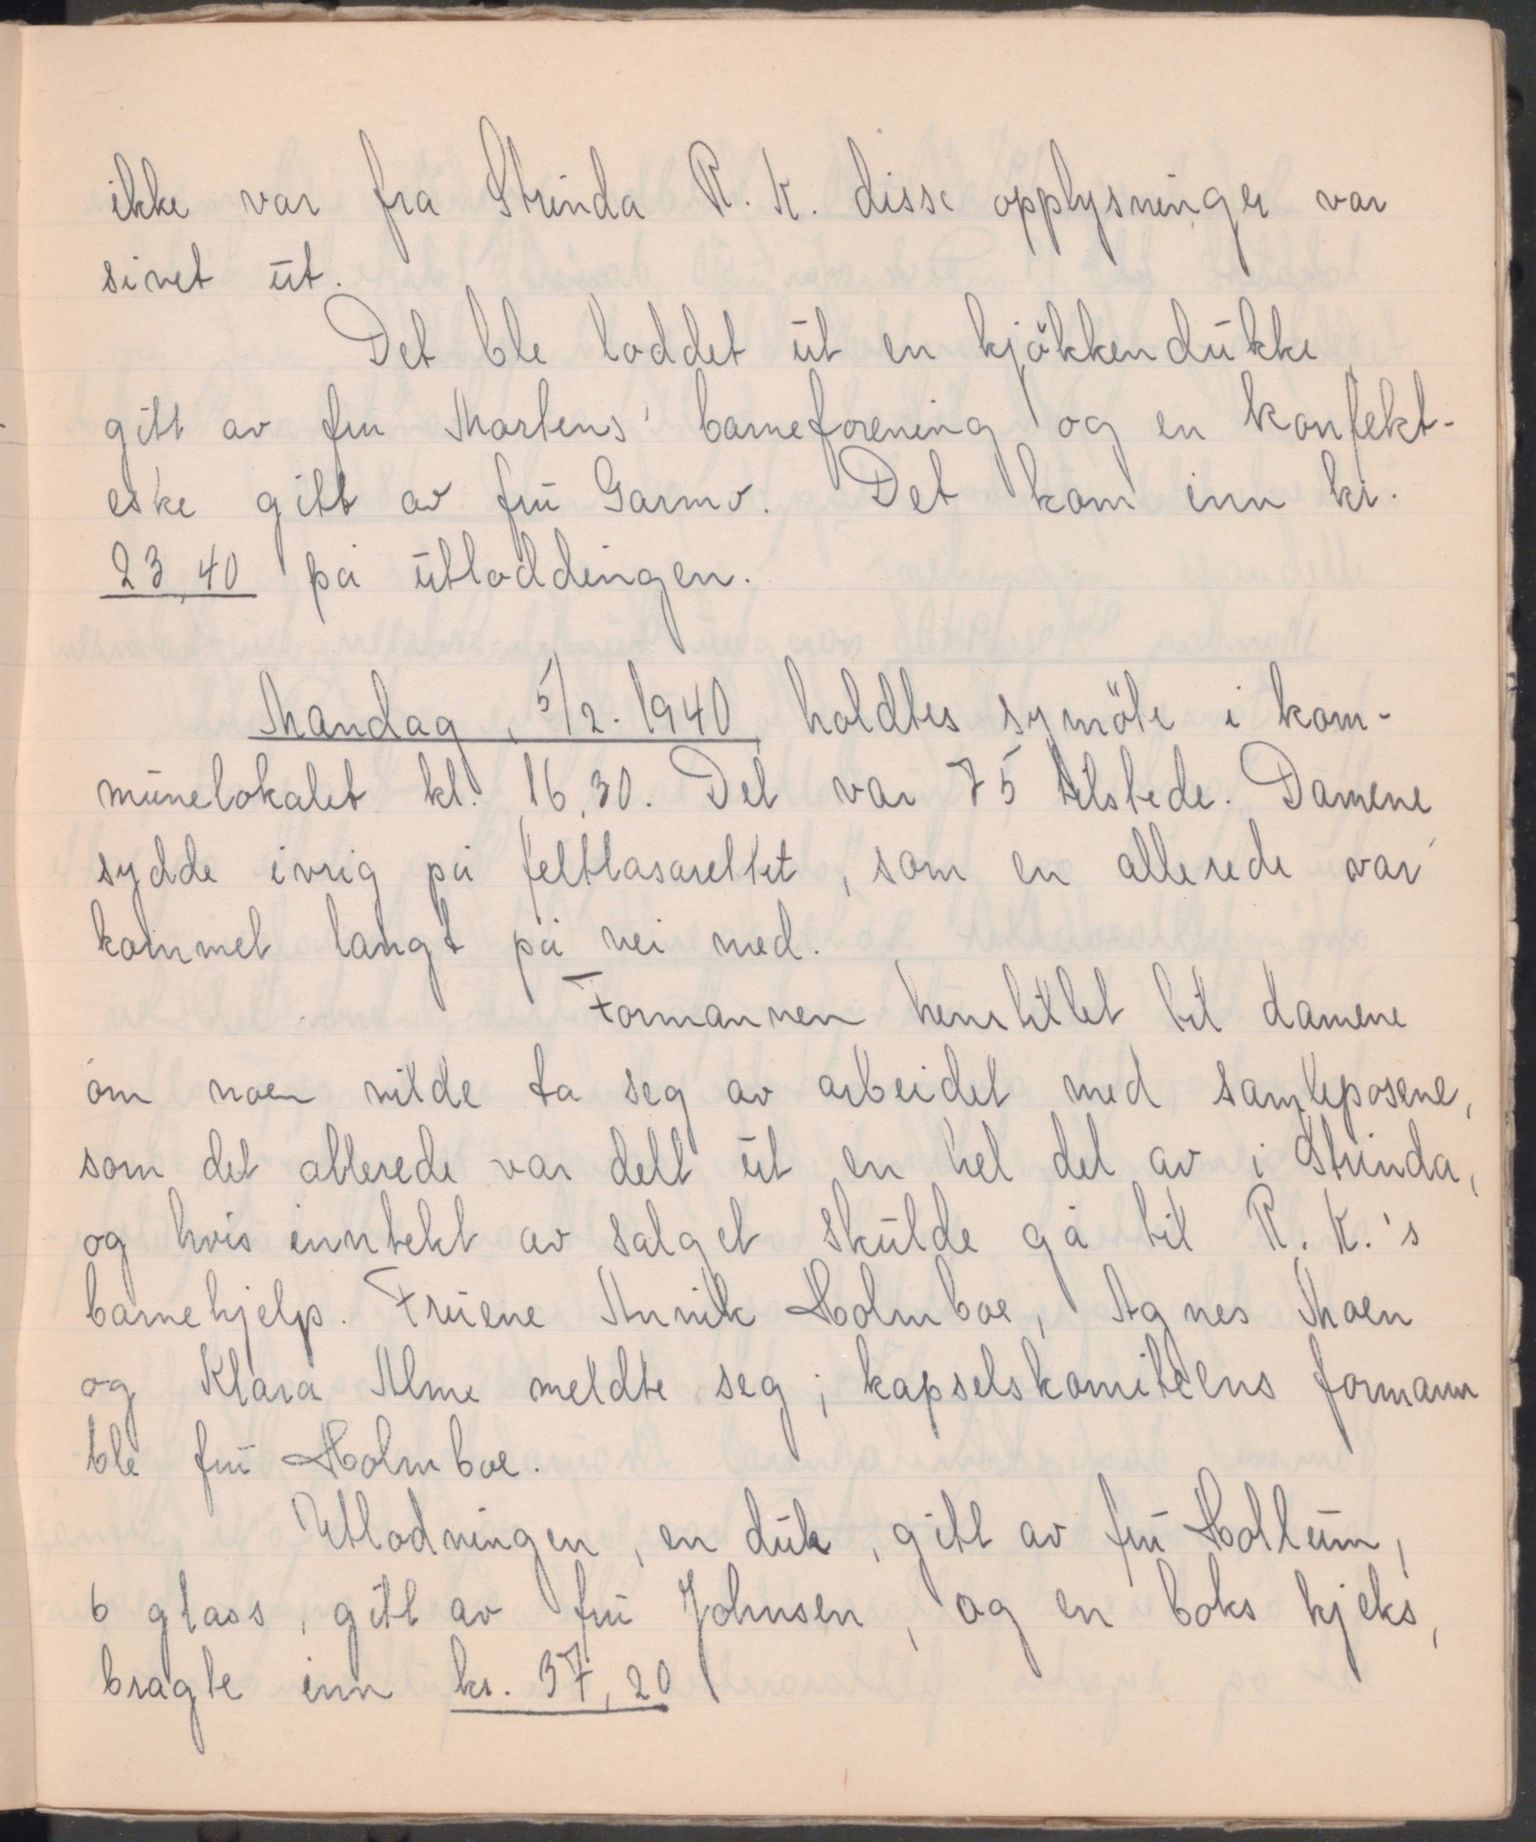 ikke var fra Strinda R. K. disse opplysninger var
sivet ut.
Det ble loddet ut en kjökkendukke,
gitt av fru Martens' barneforening og en konfekt-
eske gitt av fru Garmo. Det kom inn kr.
23,40 på utloddingen.
Mandag, 5/2. 1940, holdtes symöte i kom-
munelokalet kl. 16,30. Det var 75 tilstede. Damene
sydde ivrig på feltlasarettet, som en allerede var
kommet langt på vei med.
Formannen henstillet til damene
om noen vilde ta seg av arbeidet med samleposene,
som det allerede var delt ut en hel del av i Strinda,
og hvis inntekt av salget skulde gå til R. K.'s
barnehjelp. Fruene Annik Holmboe, Agnes Moen
og Klara Alme meldte seg; kapselskomitéens formann
ble fru Holmboe.
Utlodningen, en duk, gitt av fru Hollum,
6 glass, gitt av fru Johnsen, og en boks kjeks,
bragte inn kr. 37,20